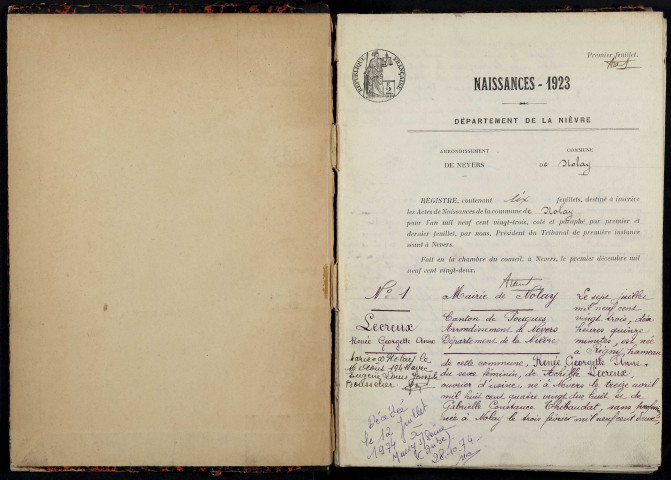 RÉPUBLIQUE FRANÇAISE
Premier feuillet.
NAISSANCES - 1923
DÉPARTEMENT DE LA NIÈVRE
ARRONDISSEMENT
DE NEVERS
COMMUNE
DE Nolay
REGISTRE, contenant six feuillets, destiné à inscrire
les Actes de Naissances de la commune de Nolay
pour l'an mil neuf cent vingt-trois, coté et paraphé par premier et
dernier feuillet, par nous, Président du Tribunal de première instance
séant à Nevers.
Fait en la chambre du conseil, à Nevers, le premier décembre mil
neuf cent vingt-deux.
N° 1
Lecreux
Renée Georgette Anne
Mariée à Nolay le
16 Août 194
Eugène Louis Joseph
Décédée
le 12 juillet
1974 à
28.10.74
Mairie de Nolay
Canton de Pougues
Arrondissement de Nevers
Département de la Nièvre
Le sept juillet
mil neuf cent
vingt trois, dix
heures quinze
minutes, est née
à hameau
de cette commune, Renée Georgette Anne,
du sexe féminin, de Achille Lecreux,
ouvrier d'usine, né à Nevers le treize avril
mil huit cent quatre vingt dix huit, et de
Gabrielle Constance Thibaudat, sans profession,
née à Nolay le trois février mil neuf cent deux,